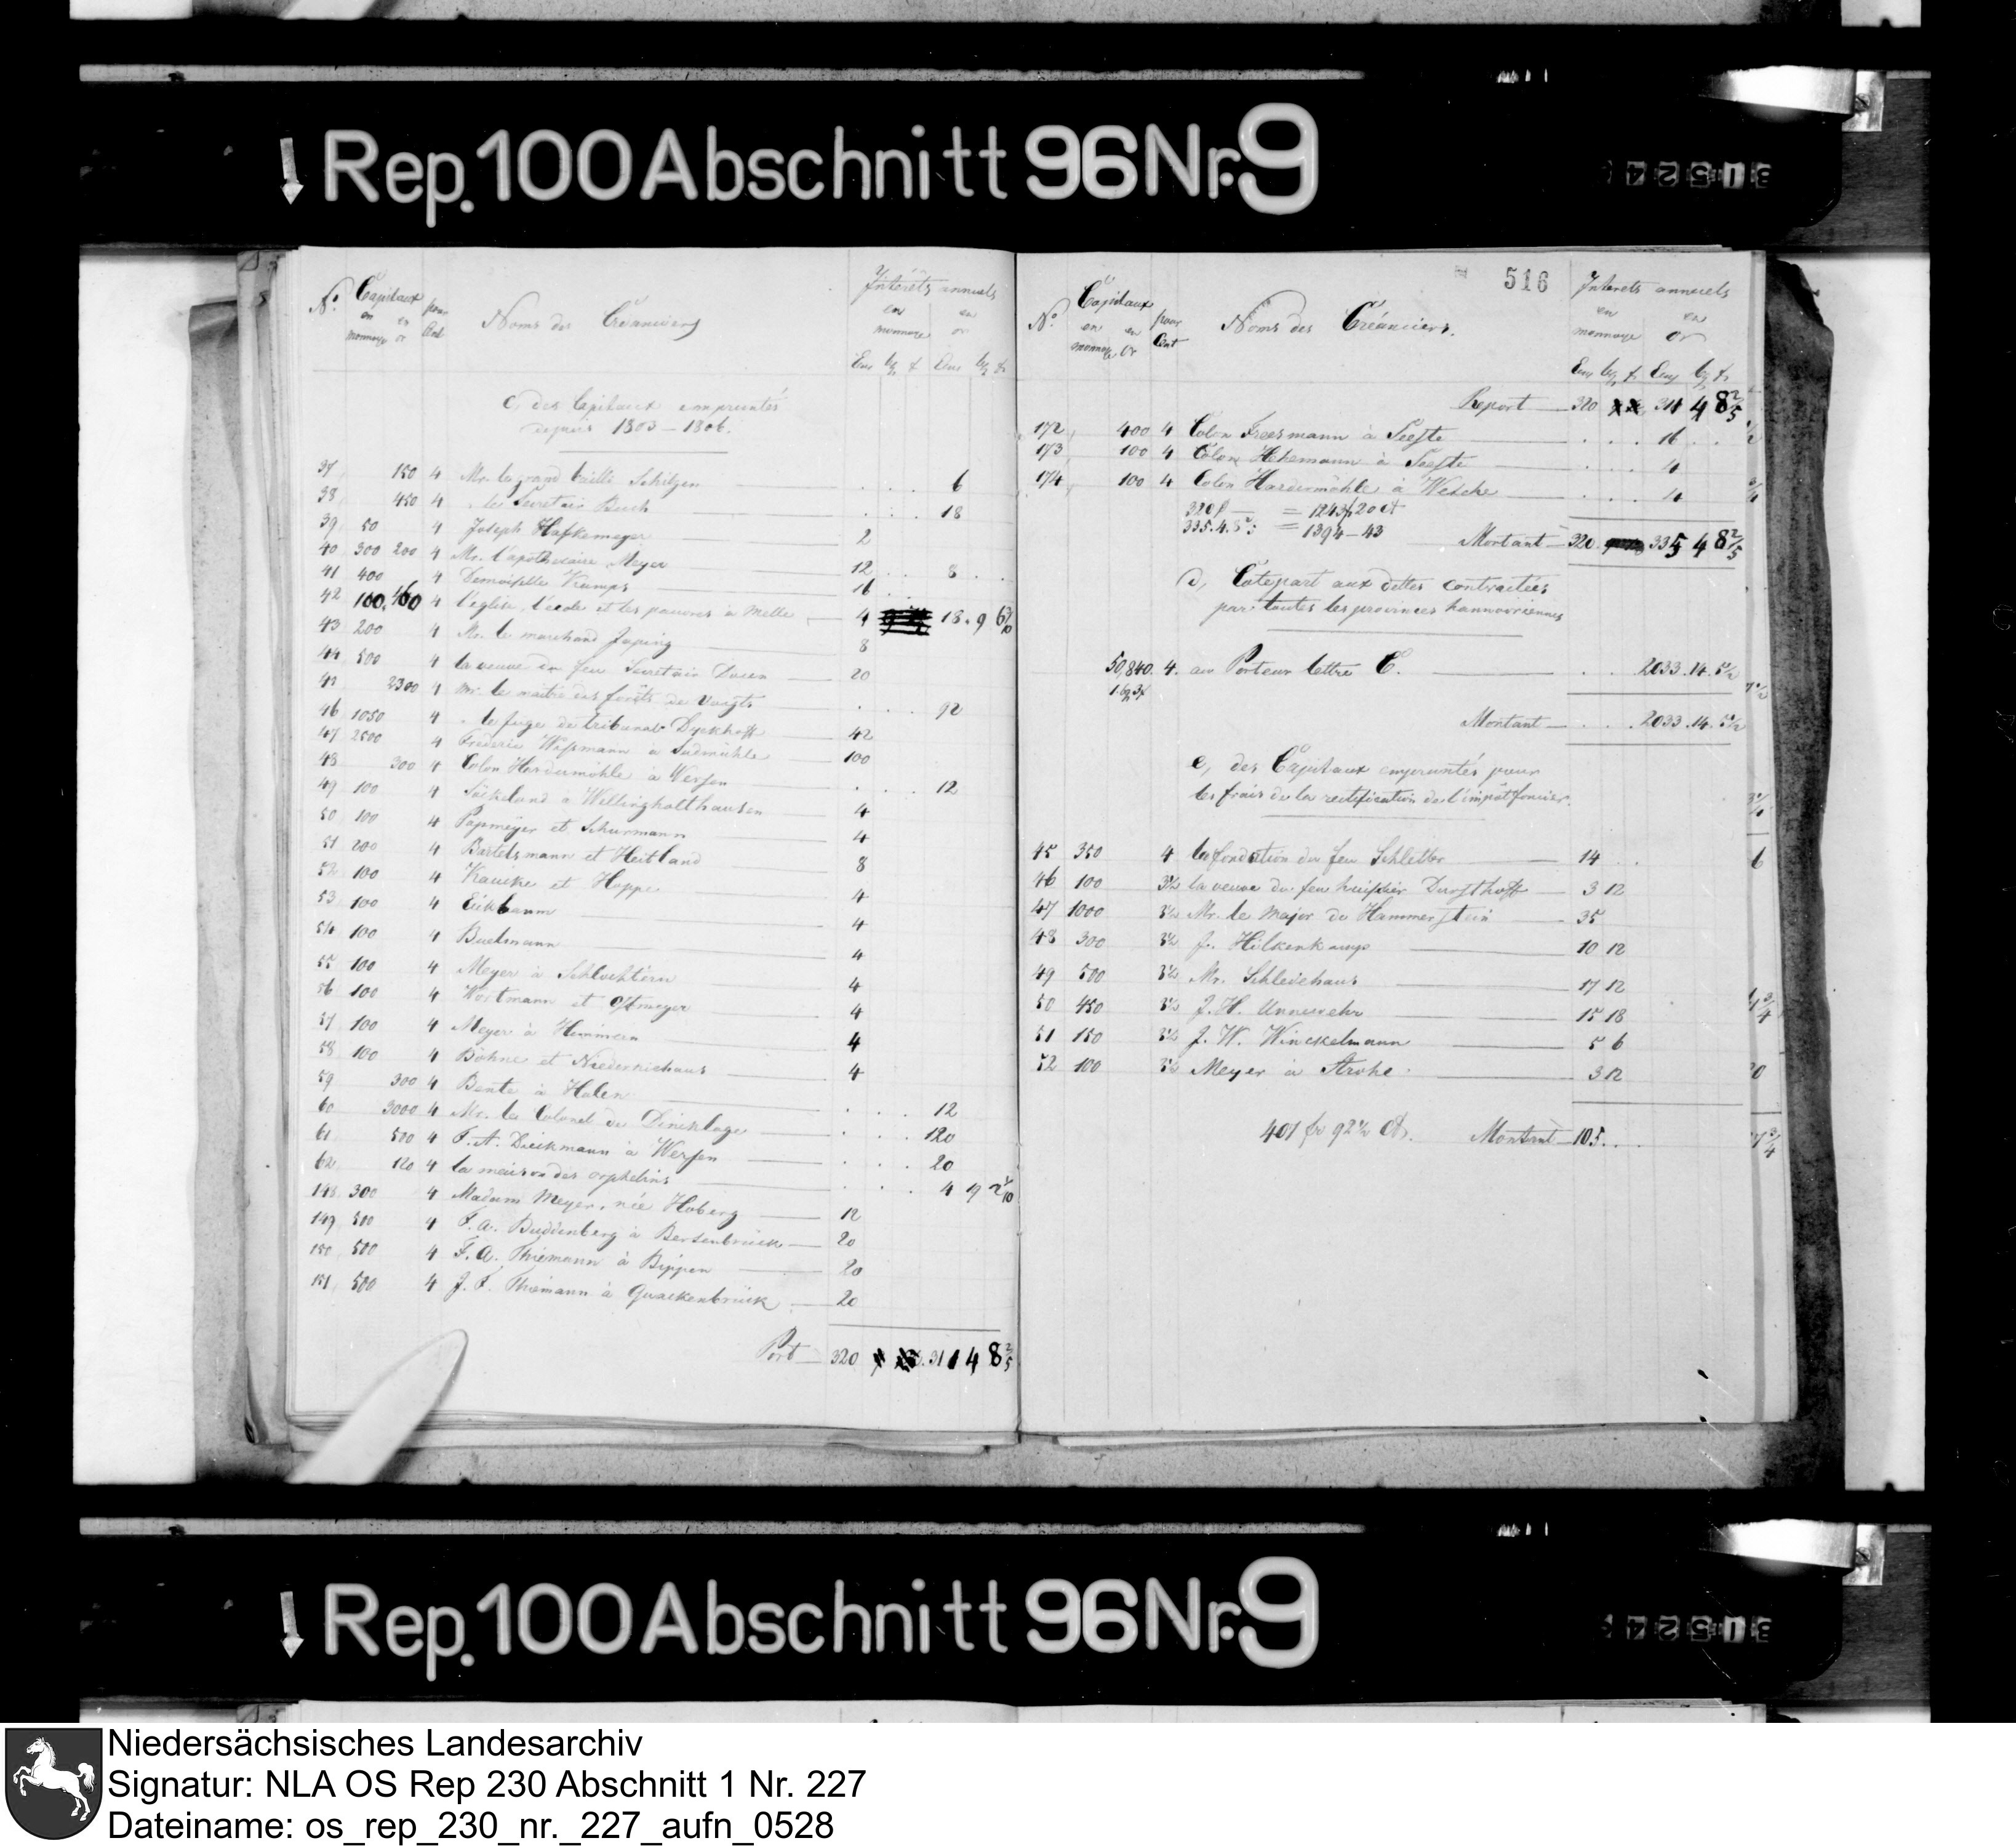 Rep. 100 Abschnitt 96 Nr. 9
No. Capitaux en monnoye en or pour Cent Noms des Créanciers Intérêts annuels en monnoye en or
c, des Capitaux empruntés
depuis 1803 – 1806.
37 150 4 Mr. le grand bailli Schilgen 6
38 450 4 " le Secretair Buch 18
39 50 4 Joseph Hafkemeyer 2
40 300 200 4 Mr. l'apothecaire Meyer 12 8
41 400 4 Demoiselle Kamps 16
42 100. 460 4 l'eglise, l'ecole et les pauvres à Melle 4 18. 9
43 200 4 Mr. le marchand Juping 8
44 500 4 la veuve du feu Secretair 20
2300 4 Mr. le maitre des forêts de Voigts 92
46 1050 4 " le juge de tribunal Dyckhoff 42
47 2500 4 Frederic Wissmann a Sudmühle 100
48 300 4 Colon Hardermöhle à Wersen 12
49 100 4 Säckeland à Wellingholthausen 4
50 100 4 Papmeyer et Schurmann 4
51 200 4 Bartelsmann et Heitland 8
52 100 4 Kaucke et Hoppe 4
53 100 4 Eickbaum 4
54 100 4 Buelmann 4
55 100 4 Meyer à Schlochtern 4
56 100 4 Wortmann et Ostmeyer 4
57 100 4 Meyer à Himmern 4
58 100 4 Böhne et Niederniehaus 4
59 300 4 Bente à Halen 12
60 3000 4 Mr. le Colonel de Dincklage 120
61 500 4 F. A. Dieckmann à Wersen 20
62 120 4 la maison des orphelins 4 9
148 300 4 Madam Meyer, née Hoberg 12
149 500 4 F. A. Buddenberg à Bersenbrück 20
150 500 4 F. A. Thiemann à Bippen 20
151 500 4 J. F. Thiemann à Quackenbrück 20
Port 320 311 4 8 2/5
516
No. Capitaux en monnoye en or pour Cent Noms des Créanciers. Interets annuels en monnoye en or
Report 320 311 4 8 2/5
172, 400 4 Colon Freesmann à Seeste 16
173, 100 4 Colon Hehemann à Seeste 4
174, 100 4 Colon Hardermöhle à Wesche 4
= 1243 f 20 ct
335. 4. 8 = 1394 – 43
Montant 320 335 4 8 2/5
d, Cotepart aux dettes contractées
par toutes les provinces hannovriennes
50,840. 4. au Porteur lettre C. 2033. 14. 5 1/2
Montant 2033. 14. 5 1/2
e, des Capitaux empruntés pour
les frais de la rectification de l'impôt foncier.
45 350 4 la fondation du feu Schletter 14
46 100 3 1/2 la veuve du feu huissier Dursthoff 3 12
47 1000 3 1/2 Mr. le Major de Hammerstein 35
48 300 3 1/2 J. Hilkenkamp 10 12
49 500 3 1/2 Mr. Schledehaus 17 12
50 450 3 1/2 J. H. Unnewehr 15 18
51 150 3 1/2 J. W. Winckelmann 5 6
52 100 3 1/2 Meyer à Strohe 3 12
401 fr 92 1/2 Ct. Montant 105
Rep. 100 Abschnitt 96 Nr. 9
Niedersächsisches Landesarchiv
Signatur: NLA OS Rep 230 Abschnitt 1 Nr. 227
Dateiname: os_rep_230_nr._227_aufn_0528